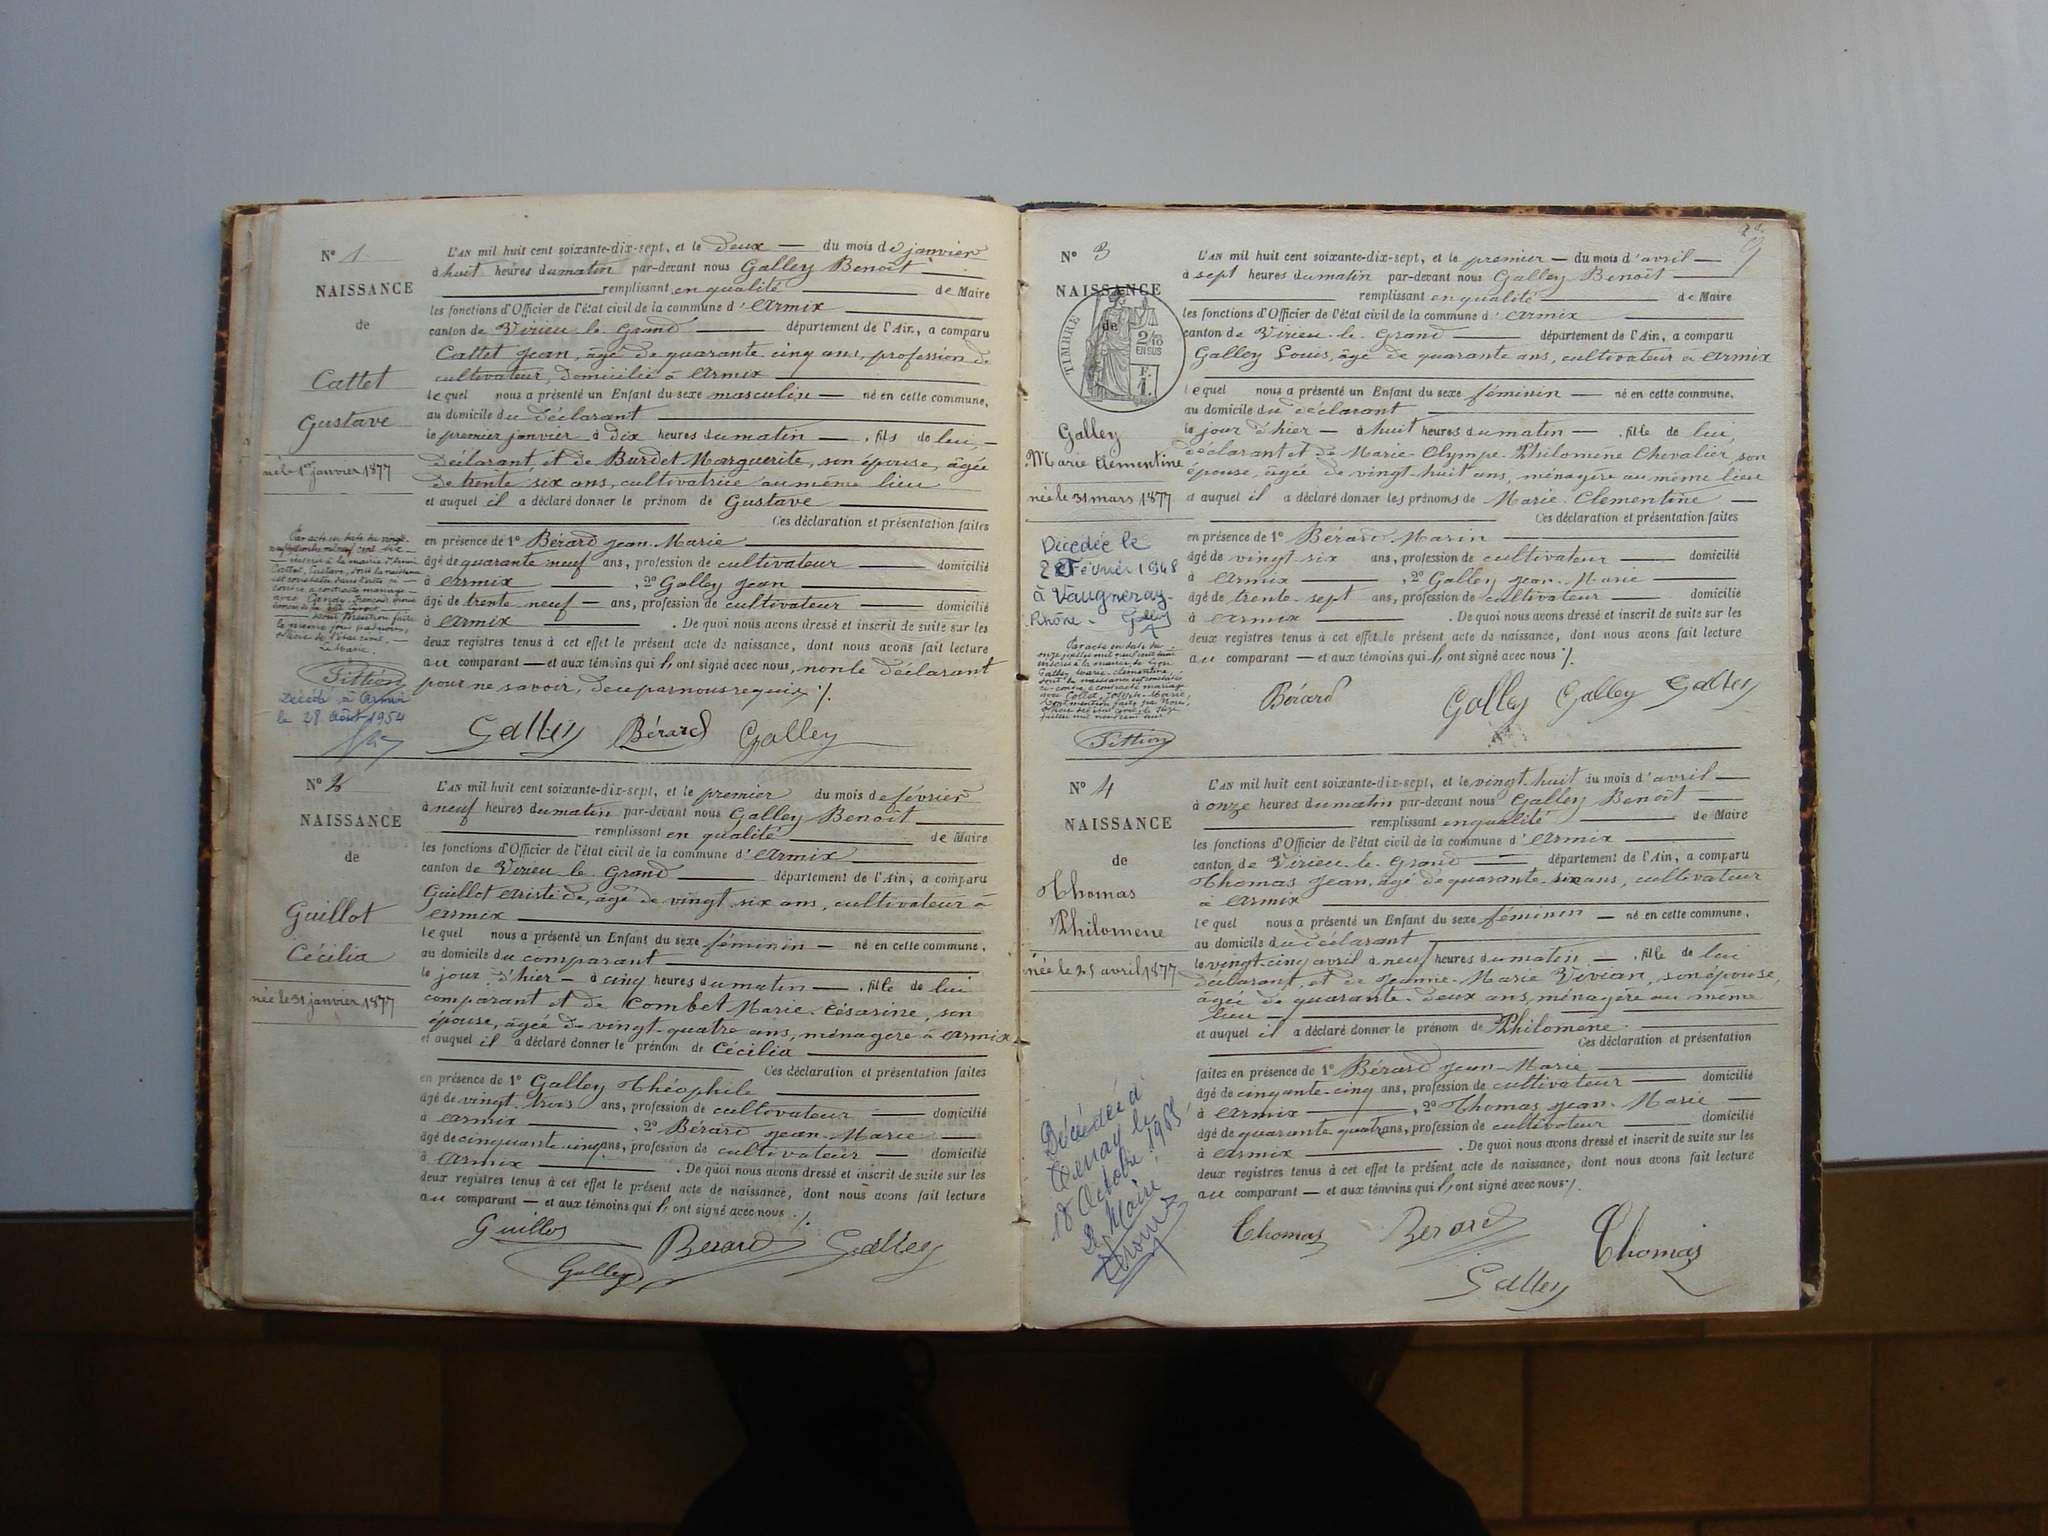 N° 1
NAISSANCE
de
Cattet
Gustave
né le 1er janvier 1877
Par acte en date du vingt
Cattet, Gustave, dont la naissance
est constatée dans l'acte ci-
contre a contracté mariage
avec
le même jour par nous,
officier de l'état civil.
Le Maire.
Fittion
Décédé à Armix
le 28 Août 1954
L'AN mil huit cent soixante-dix-sept, et le deux — du mois de janvier
à huit heures du matin par-devant nous Galley Benoît
remplissant en qualité de Maire
les fonctions d'Officier de l'état civil de la commune d'Armix
canton de Virieu-le-Grand département de l'Ain, a comparu
Cattet Jean, âgé de quarante-cinq ans, profession de
cultivateur, domicilié à Armix
lequel nous a présenté un Enfant du sexe masculin — né en cette commune,
au domicile du déclarant
le premier janvier à dix heures du matin —, fils de lui,
déclarant et de Burdet Marguerite, son épouse, âgée
de trente six ans, cultivatrice au même lieu
et auquel il a déclaré donner le prénom de Gustave
Ces déclaration et présentation faites
en présence de 1° Bérard Jean-Marie
âgé de quarante neuf ans, profession de cultivateur domicilié
à Armix , 2° Galley Jean
âgé de trente neuf — ans, profession de cultivateur domicilié
à Armix . De quoi nous avons dressé et inscrit de suite sur les
deux registres tenus à cet effet le présent acte de naissance, dont nous avons fait lecture
au comparant — et aux témoins qui ont signé avec nous, non le déclarant
pour ne savoir, de ce par nous requis ./.
Galley Bérard Galley
N° 2
NAISSANCE
de
Guillot
Cécilia
née le 31 janvier 1877
L'AN mil huit cent soixante-dix-sept, et le premier du mois de février
à neuf heures du matin par-devant nous Galley Benoît
remplissant en qualité de Maire
les fonctions d'Officier de l'état civil de la commune d'Armix
canton de Virieu-le-Grand département de l'Ain, a comparu
Guillot Aristide, âgé de vingt-six ans, cultivateur à
Armix
lequel nous a présenté un Enfant du sexe féminin — né en cette commune,
au domicile du comparant
le jour d'hier — à cinq heures du matin —, fille de lui
comparant et de Combet Marie-Césarine, son
épouse, âgée de vingt-quatre ans, ménagère à Armix
et auquel il a déclaré donner le prénom de Cécilia
Ces déclaration et présentation faites
en présence de 1° Galley Théophile
âgé de vingt-trois ans, profession de cultivateur domicilié
à Armix , 2° Bérard Jean-Marie
âgé de cinquante cinq ans, profession de cultivateur — domicilié
à Armix . De quoi nous avons dressé et inscrit de suite sur les
deux registres tenus à cet effet le présent acte de naissance, dont nous avons fait lecture
au comparant — et aux témoins qui ont signé avec nous ./.
Guillot Berard Galley
Galley
N° 3
NAISSANCE
de
TIMBRE
2/10
EN SUS
F.
1.
Galley
Marie Clementine
née le 31 mars 1877
Décédée le
2 Février 1948
à Vaugneray
Rhône. Galley
Par acte en date du
onze juillet mil neuf cent
inscrit à la mairie de Lyon
Galley, Marie-Clémentine,
dont la naissance est constatée
ci-contre a contracté mariage
avec Collet, Joseph-Marie,
Dont mention faite par Nous,
officier de l'état civil, le
juillet mil neuf cent
Fittion
L'AN mil huit cent soixante-dix-sept, et le premier — du mois d'avril —
à sept heures du matin par-devant nous Galley Benoît
remplissant en qualité de Maire
les fonctions d'Officier de l'état civil de la commune d'Armix
canton de Virieu-le-Grand département de l'Ain, a comparu
Galley Louis, âgé de quarante ans, cultivateur à Armix
lequel nous a présenté un Enfant du sexe féminin — né en cette commune,
au domicile du déclarant
le jour d'hier — à huit heures du matin —, fille de lui,
déclarant et de Marie-Olympe-Philomène Chevalier, son
épouse, âgée de vingt-huit ans, ménagère au même lieu
et auquel il a déclaré donner les prénoms de Marie-Clementine —
Ces déclaration et présentation faites
en présence de 1° Bérard Marin
âgé de vingt-six ans, profession de cultivateur domicilié
à Armix , 2° Galley Jean-Marie
âgé de trente-sept ans, profession de cultivateur domicilié
à Armix . De quoi nous avons dressé et inscrit de suite sur les
deux registres tenus à cet effet le présent acte de naissance, dont nous avons fait lecture
au comparant — et aux témoins qui ont signé avec nous ./.
Bérard Galley Galley Galley
N° 4
NAISSANCE
de
Thomas
Philomene
née le 25 avril 1877
Décédée à
Tenay le
18 Octobre 1965
Le Maire
L'AN mil huit cent soixante-dix-sept, et le vingt huit du mois d'avril —
à onze heures du matin par-devant nous Galley Benoît
remplissant en qualité de Maire
les fonctions d'Officier de l'état civil de la commune d'Armix
canton de Virieu-le-Grand département de l'Ain, a comparu
Thomas Jean, âgé de quarante-six ans, cultivateur
à Armix
lequel nous a présenté un Enfant du sexe féminin — né en cette commune,
au domicile du déclarant
le vingt-cinq avril à neuf heures du matin —, fille de lui
déclarant, et de Jeanne-Marie Vivian, son épouse,
âgée de quarante-deux ans, ménagère au même
lieu
et auquel il a déclaré donner le prénom de Philomene
Ces déclaration et présentation
faites en présence de 1° Bérard Jean-Marie
âgé de cinquante-cinq ans, profession de cultivateur domicilié
à Armix , 2° Thomas Jean-Marie
âgé de quarante quatre ans, profession de cultivateur domicilié
à Armix . De quoi nous avons dressé et inscrit de suite sur les
deux registres tenus à cet effet le présent acte de naissance, dont nous avons fait lecture
au comparant — et aux témoins qui ont signé avec nous ./.
Thomas Berard Thomas
Galley